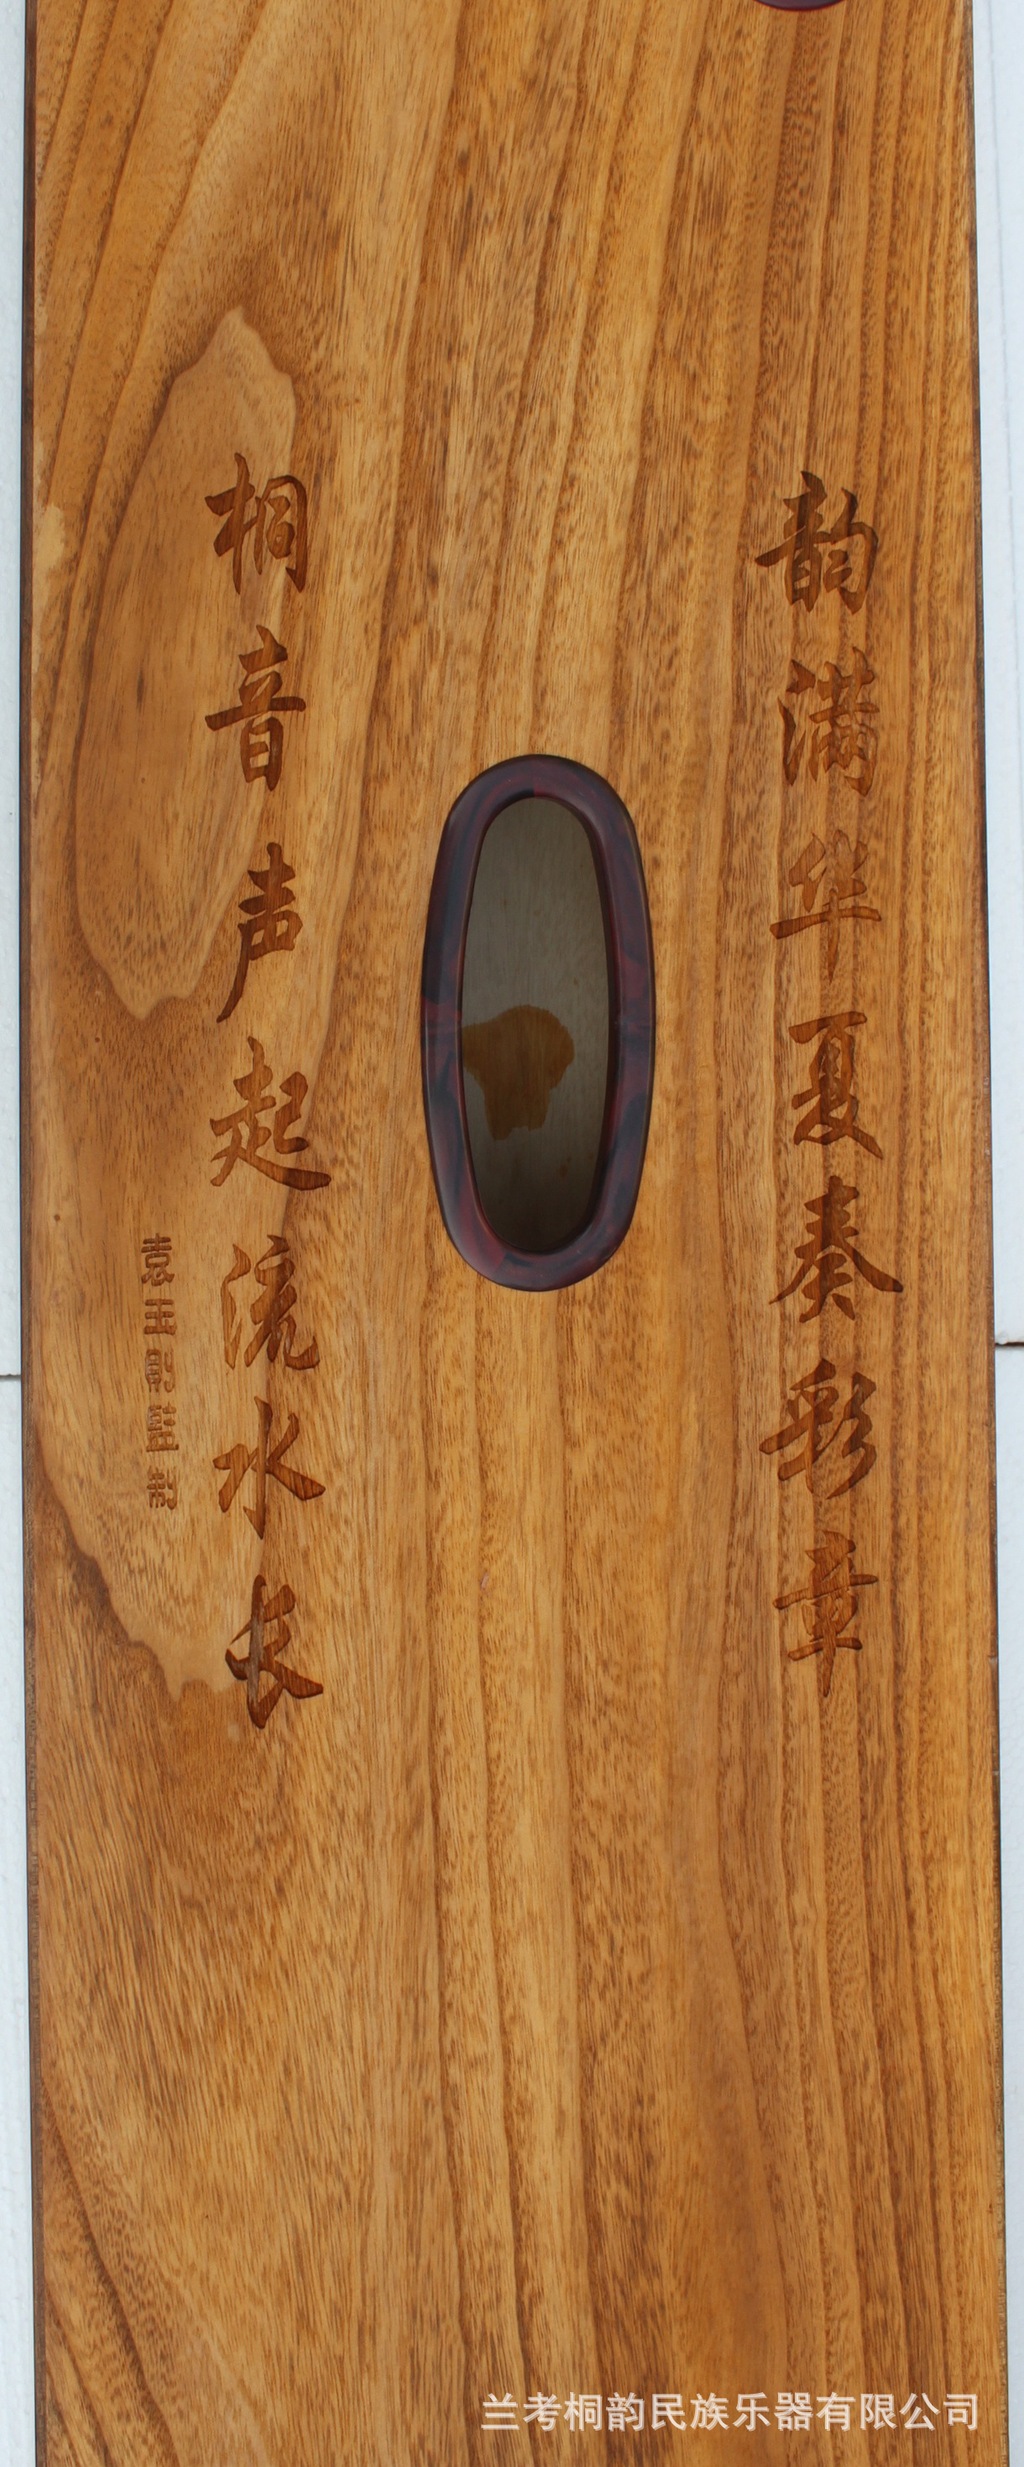 韵满华夏奏彩章
桐音声起流水长
兰考桐韵民族乐器有限公司